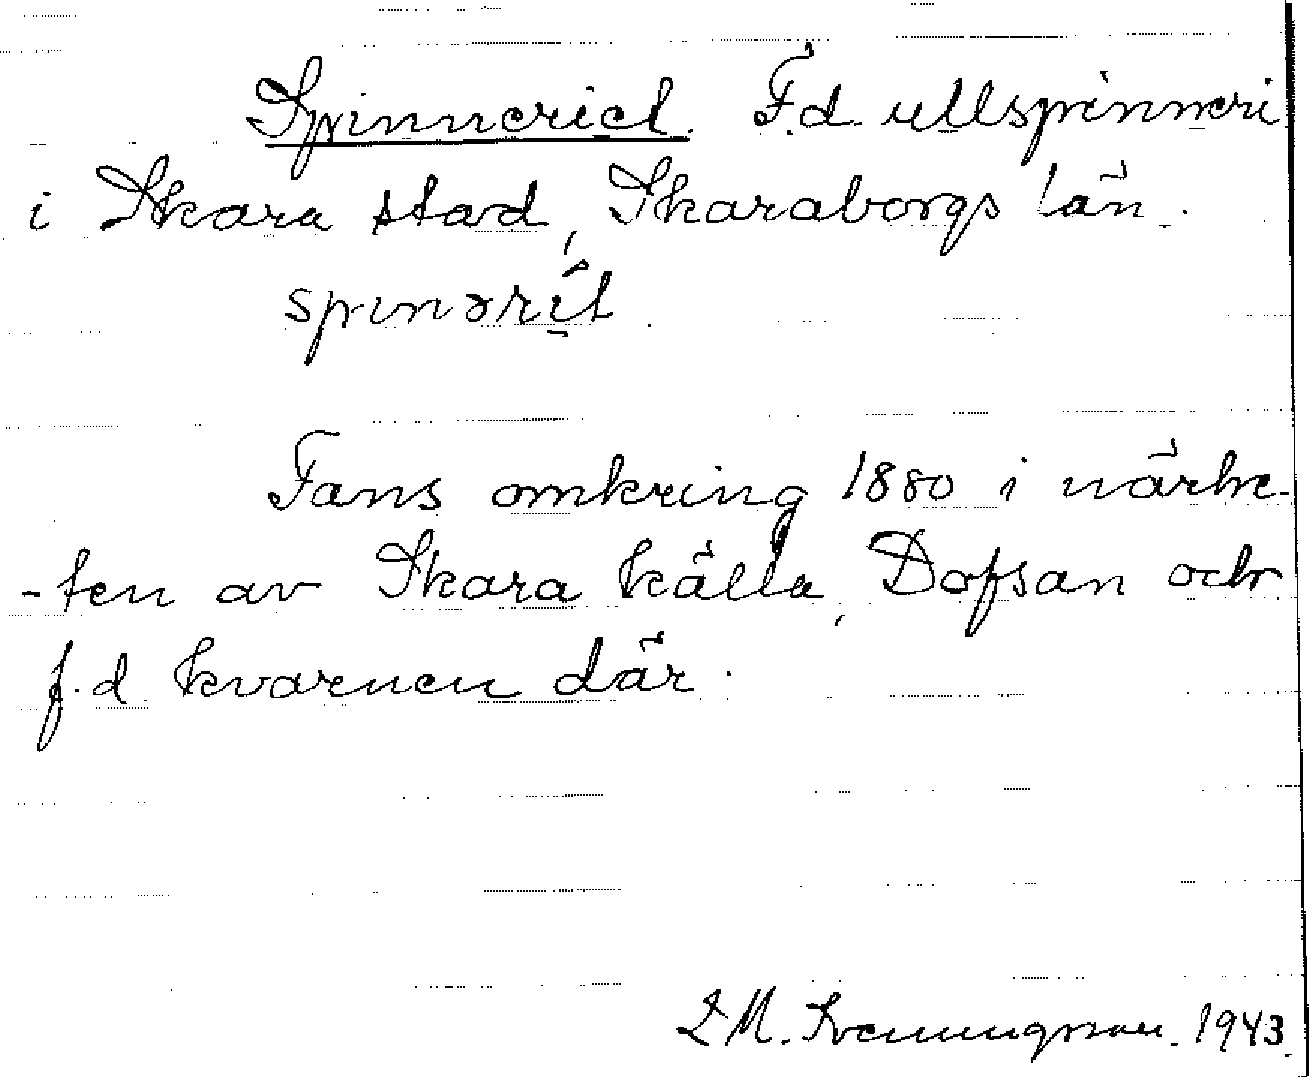 Spinneriet. F.d ullspinneri
i Skara stad, Skaraborgs län.
spinərít.
Fans omkring 1880 i närhe-
-ten av Skara källa, Dofsan och
f.d kvarnen där.
1943